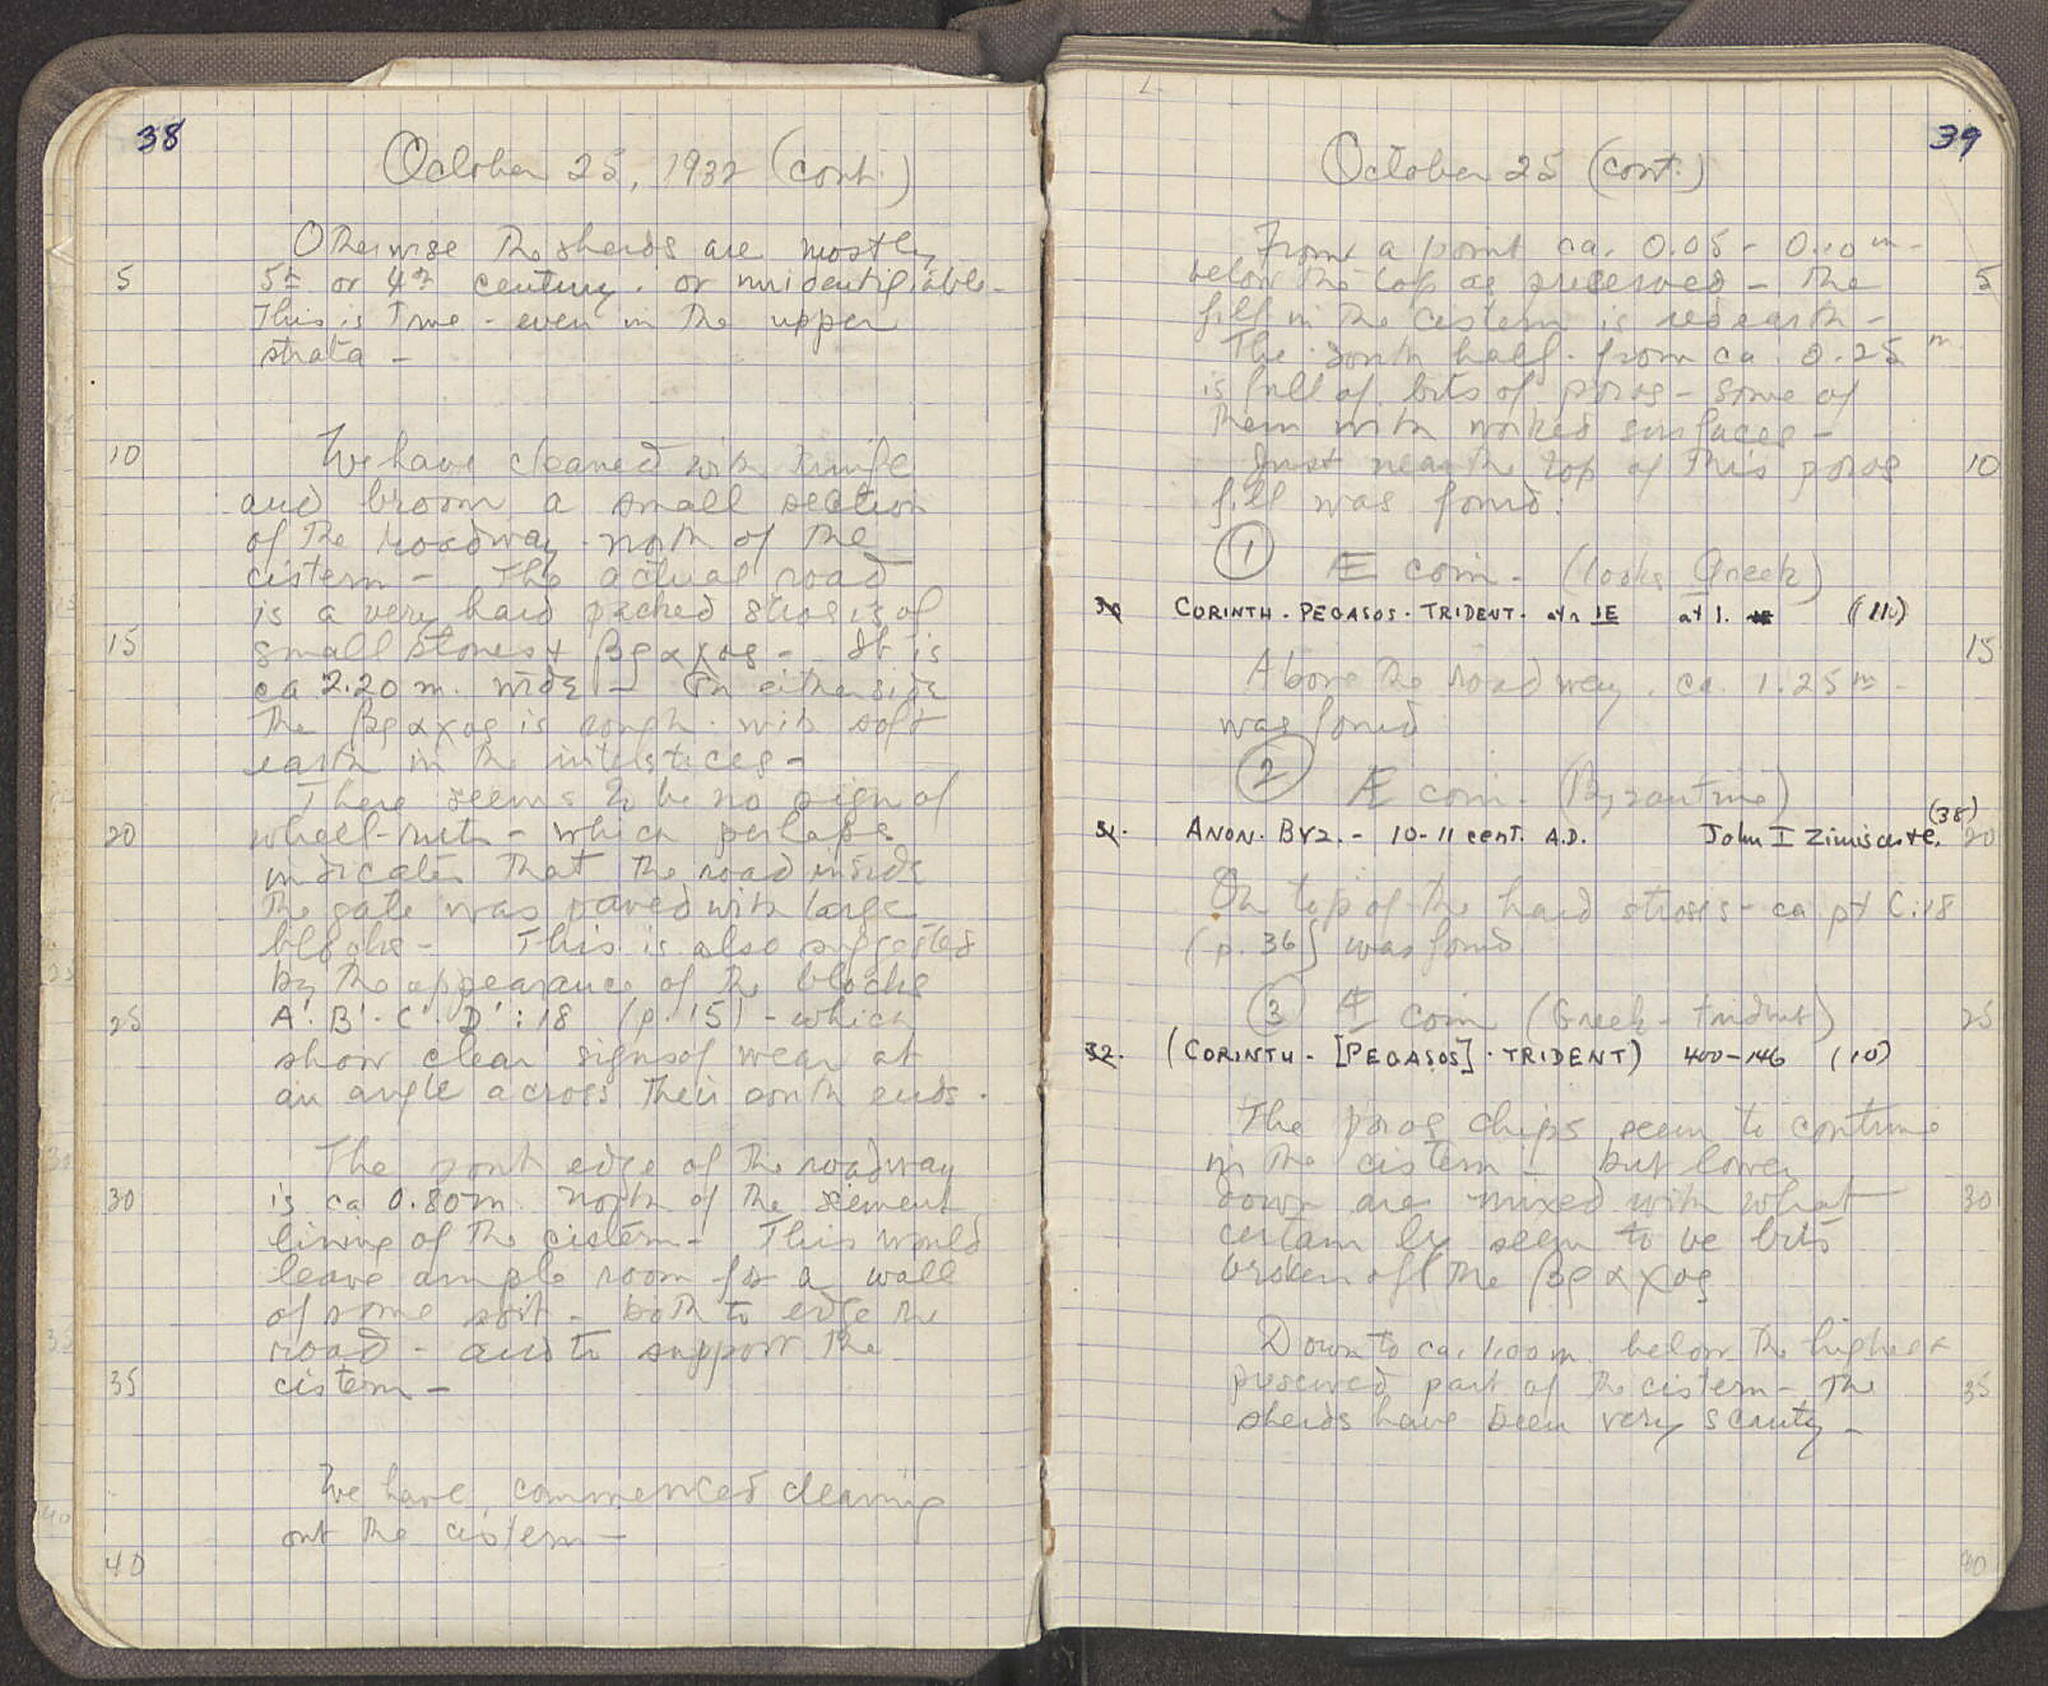 38
October 25, 1932 (cont.)
Otherwise the sherds are mostly
5 5th or 4th century. or unidentifiable -
This is true - even in the upper
strata -
10 We have cleaned with knife
and broom a small section
of the roadway - north of the
cistern - The actual road
is a very hard packed strosis of
15 small stones + βραχος - It is
ca 2.20 m. wide - On either side
the βραχος is rough. with soft
earth in the interstices -
There seems to be no sign of
20 wheel-ruts - which perhaps
indicates that the road inside
the gate was paved with large
blocks - This is also suggested
by the appearance of the blocks
25 A'. B'. C'. D' : 18 (p. 15) - which
show clear signs of wear at
an angle across their south ends.
The south edge of the roadway
30 is ca 0.80 m. north of the cement
lining of the cistern - This would
leave ample room for a wall
of some sort - both to edge the
road - and to support the
35 cistern -
We have commenced clearing
out the cistern -
40
39
October 25 (cont.)
From a point ca. 0.05 - 0.10 m -
below the top as preserved - the 5
fill in the cistern is red earth -
The south half. from ca. 0.25 m.
is full of bits of poros - some of
them with worked surfaces -
Just near the top of this poros 10
fill was found:
① Æ coin - (looks Greek)
30 CORINTH. PEGASOS. TRIDENT. at r IE at l. (110)
15
Above the roadway. ca. 1.25 m -
was found
② Æ coin - (Byzantine)
(38)
31. ANON. BYZ. - 10-11 cent. A.D. John I Zimisces 20
On top of the hard strosis - ca pt C:18
(p. 36) was found
③ Æ coin (Greek - trident) 25
32. (CORINTH - [PEGASOS] . TRIDENT) 400-146 (10)
The poros chips seem to continue
in the cistern - but lower
down are mixed with what 30
certainly seem to be bits
broken off the βραχος
Down to ca. 1.00 m. below the highest
preserved part of the cistern - the 35
sherds have been very scanty -
40